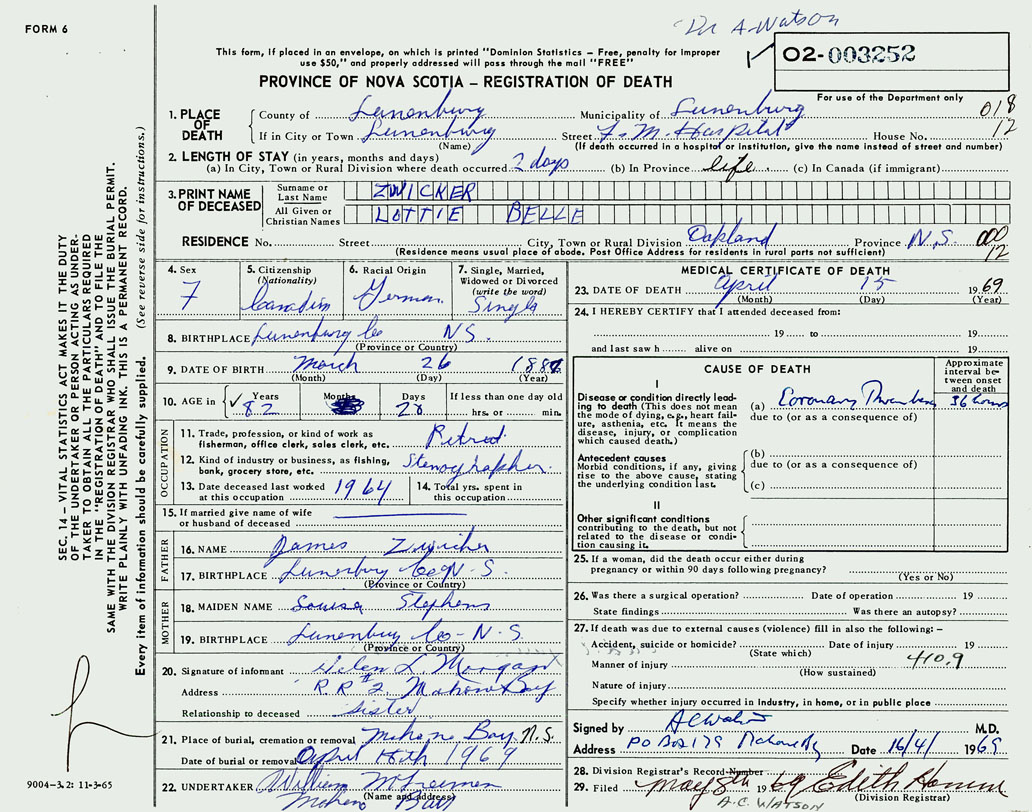 FORM 6
Dr A Watson
This form, if placed in an envelope, on which is printed "Dominion Statistics – Free, penalty for improper
use $50," and properly addressed will pass through the mail "FREE"
02-003252
PROVINCE OF NOVA SCOTIA – REGISTRATION OF DEATH
For use of the Department only
1. PLACE OF DEATH
County of Lunenburg Municipality of Lunenburg 018
If in City or Town Lunenburg Street F. M. Hospital House No. 12
(Name) (If death occurred in a hospital or institution, give the name instead of street and number)
2. LENGTH OF STAY (in years, months and days)
(a) In City, Town or Rural Division where death occurred 2 days (b) In Province life (c) In Canada (if immigrant)
3. PRINT NAME OF DECEASED
Surname or Last Name ZWICKER
All Given or Christian Names LOTTIE BELLE
RESIDENCE No. Street City, Town or Rural Division Oakland Province N.S. 000
(Residence means usual place of abode. Post Office Address for residents in rural parts not sufficient) 12
4. Sex F
5. Citizenship (Nationality) Canadian
6. Racial Origin German
7. Single, Married, Widowed or Divorced (write the word) Single
8. BIRTHPLACE Lunenburg Co NS.
(Province or Country)
9. DATE OF BIRTH March 26
(Month) (Day) (Year)
10. AGE in Years 82 Months Days If less than one day old
hrs. or min.
OCCUPATION
11. Trade, profession, or kind of work as fisherman, office clerk, sales clerk, etc. Retired
12. Kind of industry or business, as fishing, bank, grocery store, etc. Stenographer
13. Date deceased last worked at this occupation 1964
14. Total yrs. spent in this occupation
15. If married give name of wife or husband of deceased
FATHER
16. NAME James Zwicker
17. BIRTHPLACE Lunenburg Co N.S.
(Province or Country)
MOTHER
18. MAIDEN NAME Louisa Stephens
19. BIRTHPLACE Lunenburg Co- N.S.
(Province or Country)
20. Signature of informant Helen L. Morgan
Address R.R #2. Mahone Bay
Relationship to deceased sister
21. Place of burial, cremation or removal Mahone Bay, N.S.
Date of burial or removal April 1969
22. UNDERTAKER William
(Name and address) Mahone Bay
MEDICAL CERTIFICATE OF DEATH
23. DATE OF DEATH April 15 1969
(Month) (Day) (Year)
24. I HEREBY CERTIFY that I attended deceased from:
19 to 19
and last saw h alive on 19
CAUSE OF DEATH
Approximate interval between onset and death
I
Disease or condition directly leading to death (This does not mean the mode of dying, e.g., heart failure, asthenia, etc. It means the disease, injury, or complication which caused death.)
(a) Coronary Thrombosis 36 hours
due to (or as a consequence of)
Antecedent causes
Morbid conditions, if any, giving rise to the above cause, stating the underlying condition last.
(b)
due to (or as a consequence of)
(c)
II
Other significant conditions
contributing to the death, but not related to the disease or condition causing it.
25. If a woman, did the death occur either during
pregnancy or within 90 days following pregnancy?
(Yes or No)
26. Was there a surgical operation? Date of operation 19
State findings Was there an autopsy?
27. If death was due to external causes (violence) fill in also the following: –
Accident, suicide or homicide? Date of injury 19
(State which) 410.9
Manner of injury
(How sustained)
Nature of injury
Specify whether injury occurred in industry, in home, or in public place
Signed by A C Watson M.D.
Address PO Box 179 Mahone Bay Date 16/4/ 1969
28. Division Registrar's Record Number
29. Filed May 8th 1969 Edith
A.C. WATSON (Division Registrar)
SEC. 14 – VITAL STATISTICS ACT MAKES IT THE DUTY
OF THE UNDERTAKER OR PERSON ACTING AS UNDER-
TAKER TO OBTAIN ALL THE PARTICULARS REQUIRED
IN THE "REGISTRATION OF DEATH" AND TO FILE THE
SAME WITH THE DIVISION REGISTRAR WHO SHALL ISSUE THE BURIAL PERMIT.
WRITE PLAINLY WITH UNFADING INK. THIS IS A PERMANENT RECORD.
Every item of information should be carefully supplied. (See reverse side for instructions.)
9004-3.2: 11-3-65